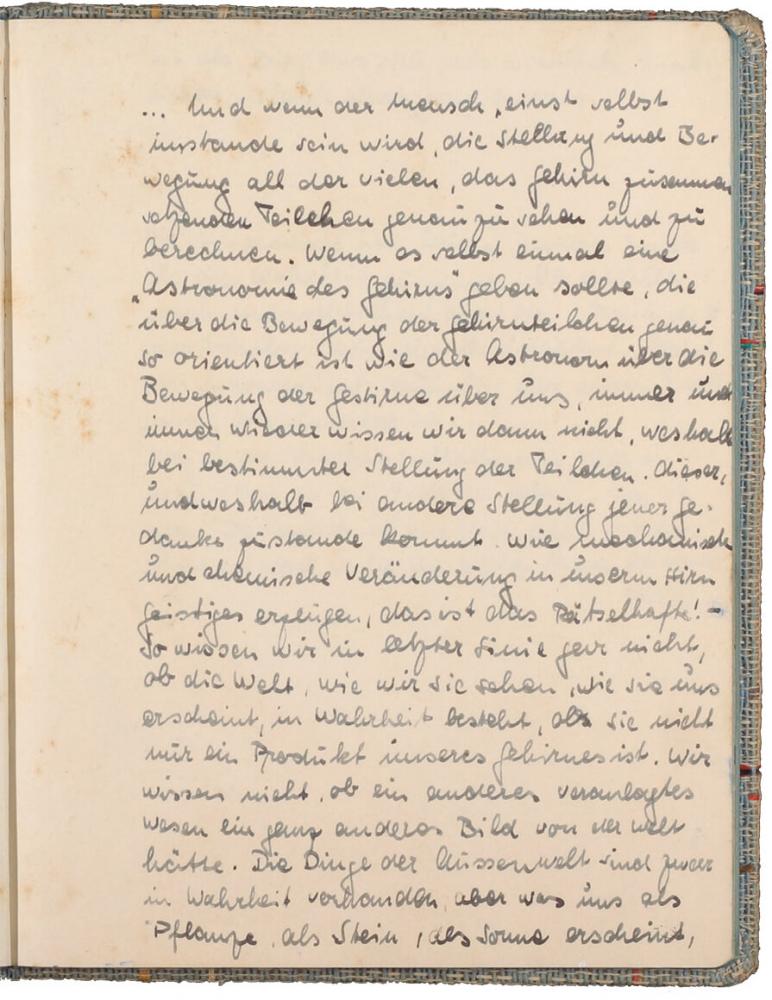 ... Und wenn der Mensch, einst selbst
imstande sein wird, die Stellung und Be-
wegung all der vielen, das Gehirn zusammen
setzenden Teilchen genau zu sehen und zu
berechnen. Wenn es selbst einmal eine
„Astronomie des Gehirns" geben sollte, die
über die Bewegung der Gehirnteilchen genau
so orientiert ist wie der Astronom über die
Bewegung der Gestirne über uns, immer und
immer wieder wissen wir dann nicht, weshalb
bei bestimmter Stellung der Teilchen. dieser,
und weshalb bei andere Stellung jener Ge-
danke zustande kommt. Wie mechanisch
und chemische Veränderung in unserm Hirn
geistiges erzeugen, das ist das Rätselhafte! -
So wissen wir in letzter Linie gar nicht,
ob die Welt, wie wir sie sehen, wie sie uns
erscheint, in Wahrheit besteht, ob sie nicht
nur ein Produkt unseres Gehirnes ist. Wir
wissen nicht, ob ein anderes veranlagtes
Wesen ein ganz anderes Bild von der Welt
hätte. Die Dinge der Aussenwelt sind zwar
in Wahrheit vorhanden, aber was uns als
Pflanze, als Stein, als Sonne erscheint,